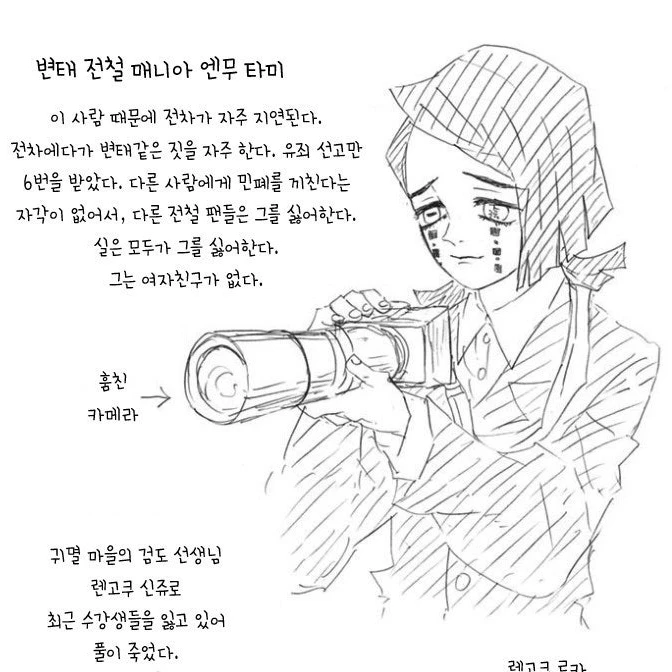 변태 전철 매니아 엔무 타미
이 사람 때문에 전차가 자주 지연된다.
전차에다가 변태같은 짓을 자주 한다. 유죄 선고만
6번을 받았다. 다른 사람에게 민폐를 끼친다는
자각이 없어서, 다른 전철 팬들은 그를 싫어한다.
실은 모두가 그를 싫어한다.
그는 여자친구가 없다.
훔친
카메라
귀멸 마을의 검도 선생님
렌고쿠 신쥬로
최근 수강생들을 잃고 있어
풀이 죽었다.